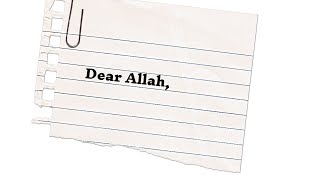 Dear Allah,